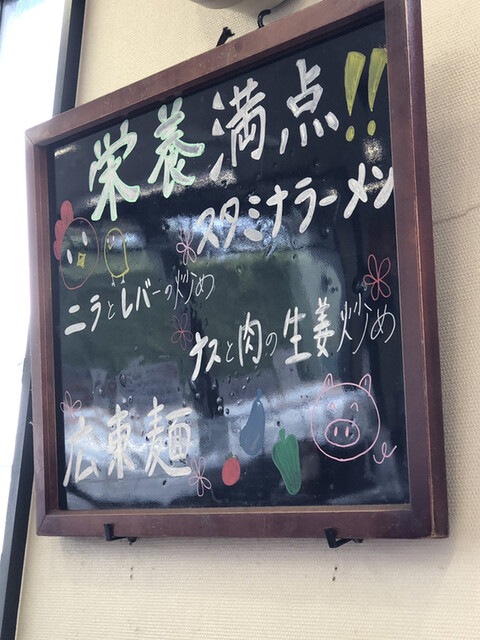 栄養満点!!
スタミナラーメン
ニラとレバーの炒め
ナスと肉の生姜炒め
広東麺